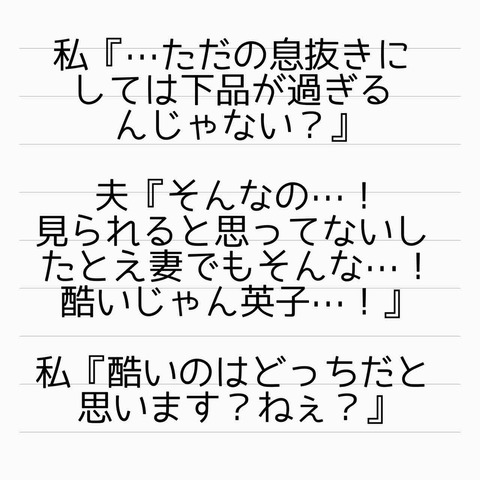 私『…ただの息抜きに
しては下品が過ぎる
んじゃない？』
夫『そんなの…！
見られると思ってないし
たとえ妻でもそんな…！
酷いじゃん英子…！』
私『酷いのはどっちだと
思います？ねぇ？』